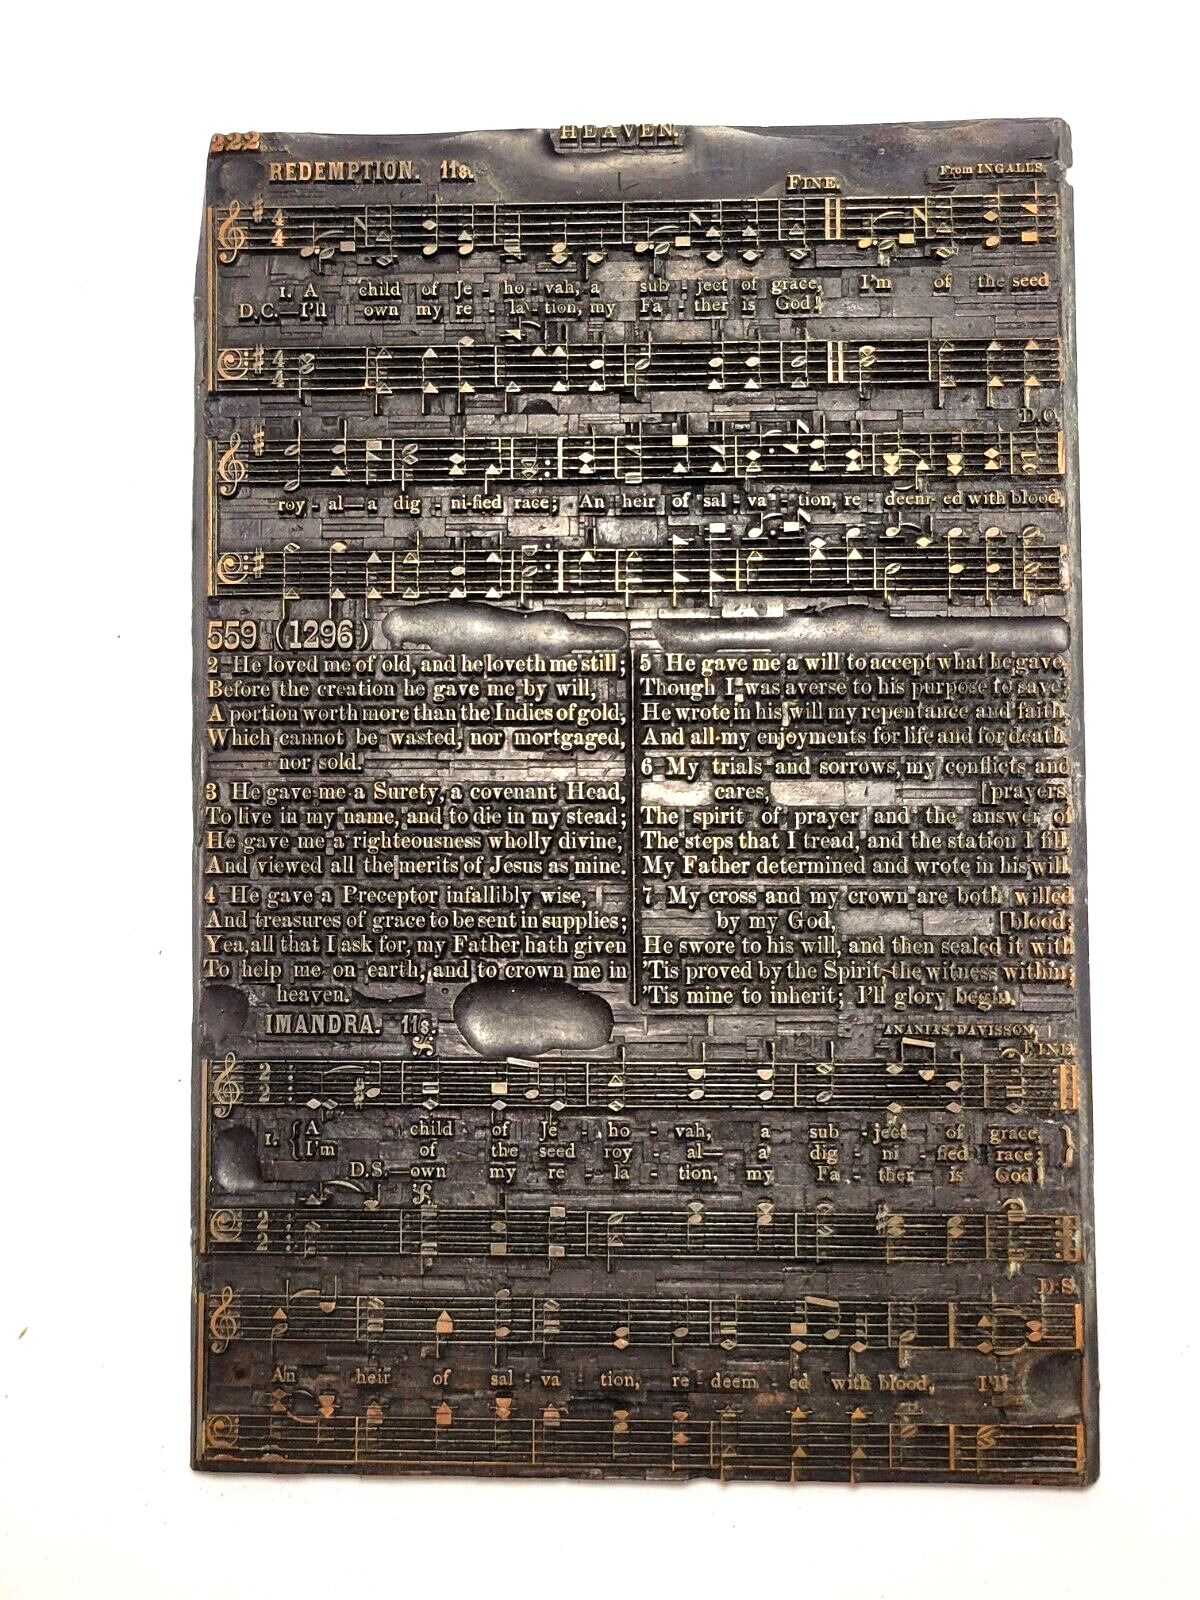 222
HEAVEN.
REDEMPTION. 11s.
From INGALLS.
FINE.
4
4
1. A child of Je - ho - vah, a sub - ject of grace, I'm of the seed
D.C.—I'll own my re - la - tion, my Fa - ther is God!
4
4
D.C.
roy - al—a dig - ni-fied race; An heir of sal - va - tion, re - deem - ed with blood,
559 (1296)
2 He loved me of old, and he loveth me still;
Before the creation he gave me by will,
A portion worth more than the Indies of gold,
Which cannot be wasted, nor mortgaged,
nor sold.
3 He gave me a Surety, a covenant Head,
To live in my name, and to die in my stead;
He gave me a righteousness wholly divine,
And viewed all the merits of Jesus as mine.
4 He gave a Preceptor infallibly wise,
And treasures of grace to be sent in supplies;
Yea, all that I ask for, my Father hath given
To help me on earth, and to crown me in
heaven.
5 He gave me a will to accept what he gave,
Though I was averse to his purpose to save;
He wrote in his will my repentance and faith,
And all my enjoyments for life and for death.
6 My trials and sorrows, my conflicts and
cares, [prayers,
The spirit of prayer and the answer of
The steps that I tread, and the station I fill
My Father determined and wrote in his will.
7 My cross and my crown are both willed
by my God, [blood;
He swore to his will, and then sealed it with
'Tis proved by the Spirit, the witness within;
'Tis mine to inherit; I'll glory begin.
IMANDRA. 11s.
ANANIAS DAVISSON.
FINE.
2
2
1. { A child of Je - ho - vah, a sub - ject of grace, }
I'm of the seed roy - al— a dig - ni - fied race;
D.S.—own my re - la - tion, my Fa - ther is God!
2
2
D.S.
An heir of sal - va - tion, re - deem - ed with blood, I'll